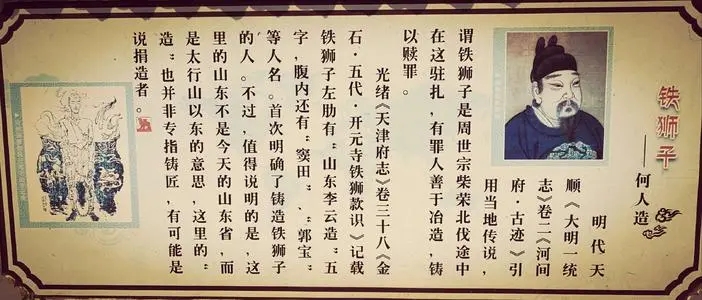 铁狮子
——何人造
明代天
顺《大明一统
志》卷二《河间
府·古迹》引
用当地传说，
谓铁狮子是周世宗柴荣北伐途中
在这驻扎，有罪人善于冶造，铸
以赎罪。
光绪《天津府志》卷三十八《金
石·五代·开元寺铁狮款识》记载
铁狮子左肋有“山东李云造”五
字，腹内还有“窦田”、“郭宝”
等人名。首次明确了铸造铁狮子
的人。不过，值得说明的是，这
里的山东不是今天的山东省，而
是太行山以东的意思，这里的“
造”也并非专指铸匠，有可能是
说捐造者。